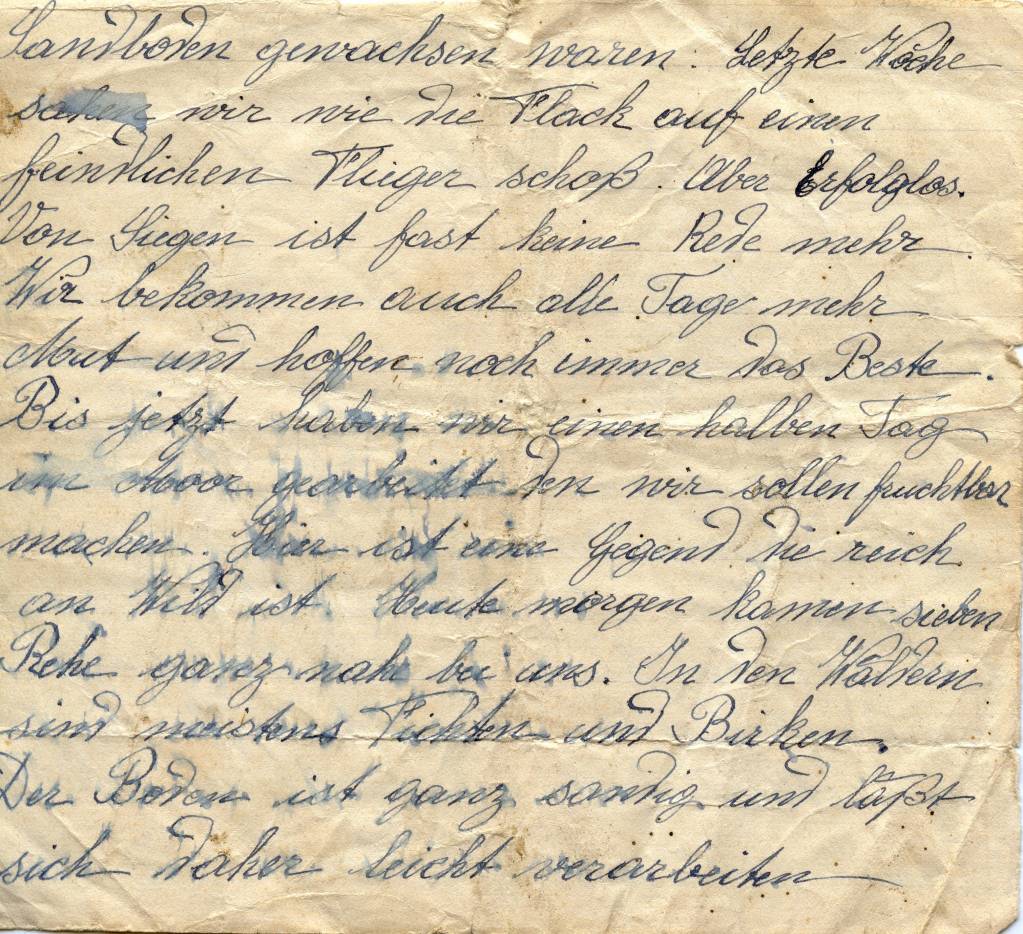 Sandboden gewachsen waren. Letzte Woche
sahen wir wie die Flack auf einen
feindlichen Flieger schoß. Aber Erfolglos.
Von Siegen ist fast keine Rede mehr.
Wir bekommen auch alle Tage mehr
Mut und hoffen noch immer das Beste.
Bis jetzt haben wir einen halben Tag
im Moor gearbeitet den wir sollen fruchtbar
machen. Hier ist eine Gegend die reich
an Wild ist. Heute morgen kamen sieben
Rehe ganz nah bei uns. In den Wäldern
sind meistens Fichten und Birken.
Der Boden ist ganz sandig und läßt
sich daher leicht verarbeiten